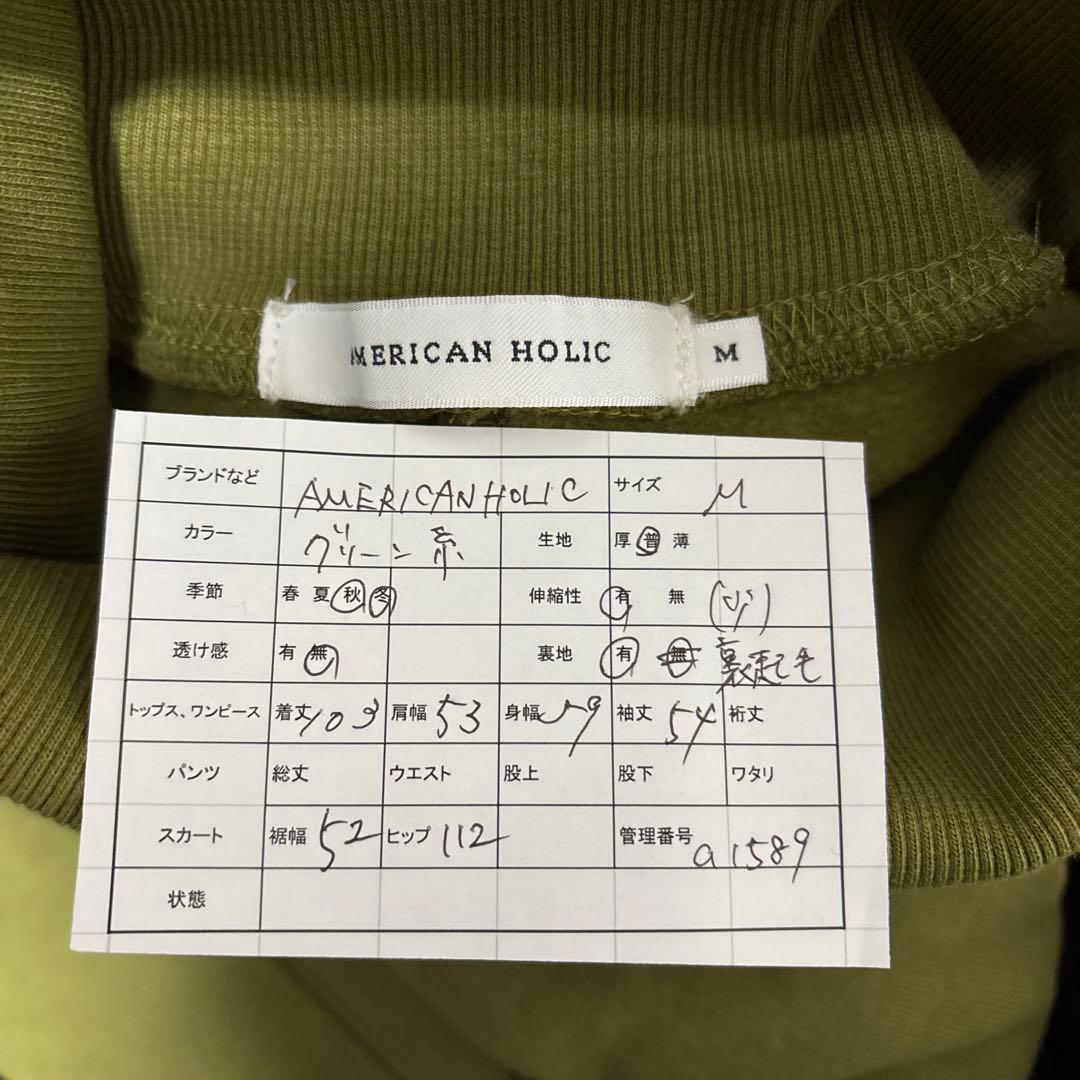 MERICAN HOLIC
M
ブランドなど AMERICAN HOLIC サイズ M
カラー グリーン系 生地 厚 普 薄
季節 春 夏 秋 冬 伸縮性 有 無 (少)
透け感 有 無 裏地 有 無 裏起毛
トップス、ワンピース 着丈 103 肩幅 53 身幅 59 袖丈 54 裄丈
パンツ 総丈 ウエスト 股上 股下 ワタリ
スカート 裾幅 52 ヒップ 112 管理番号 a1589
状態